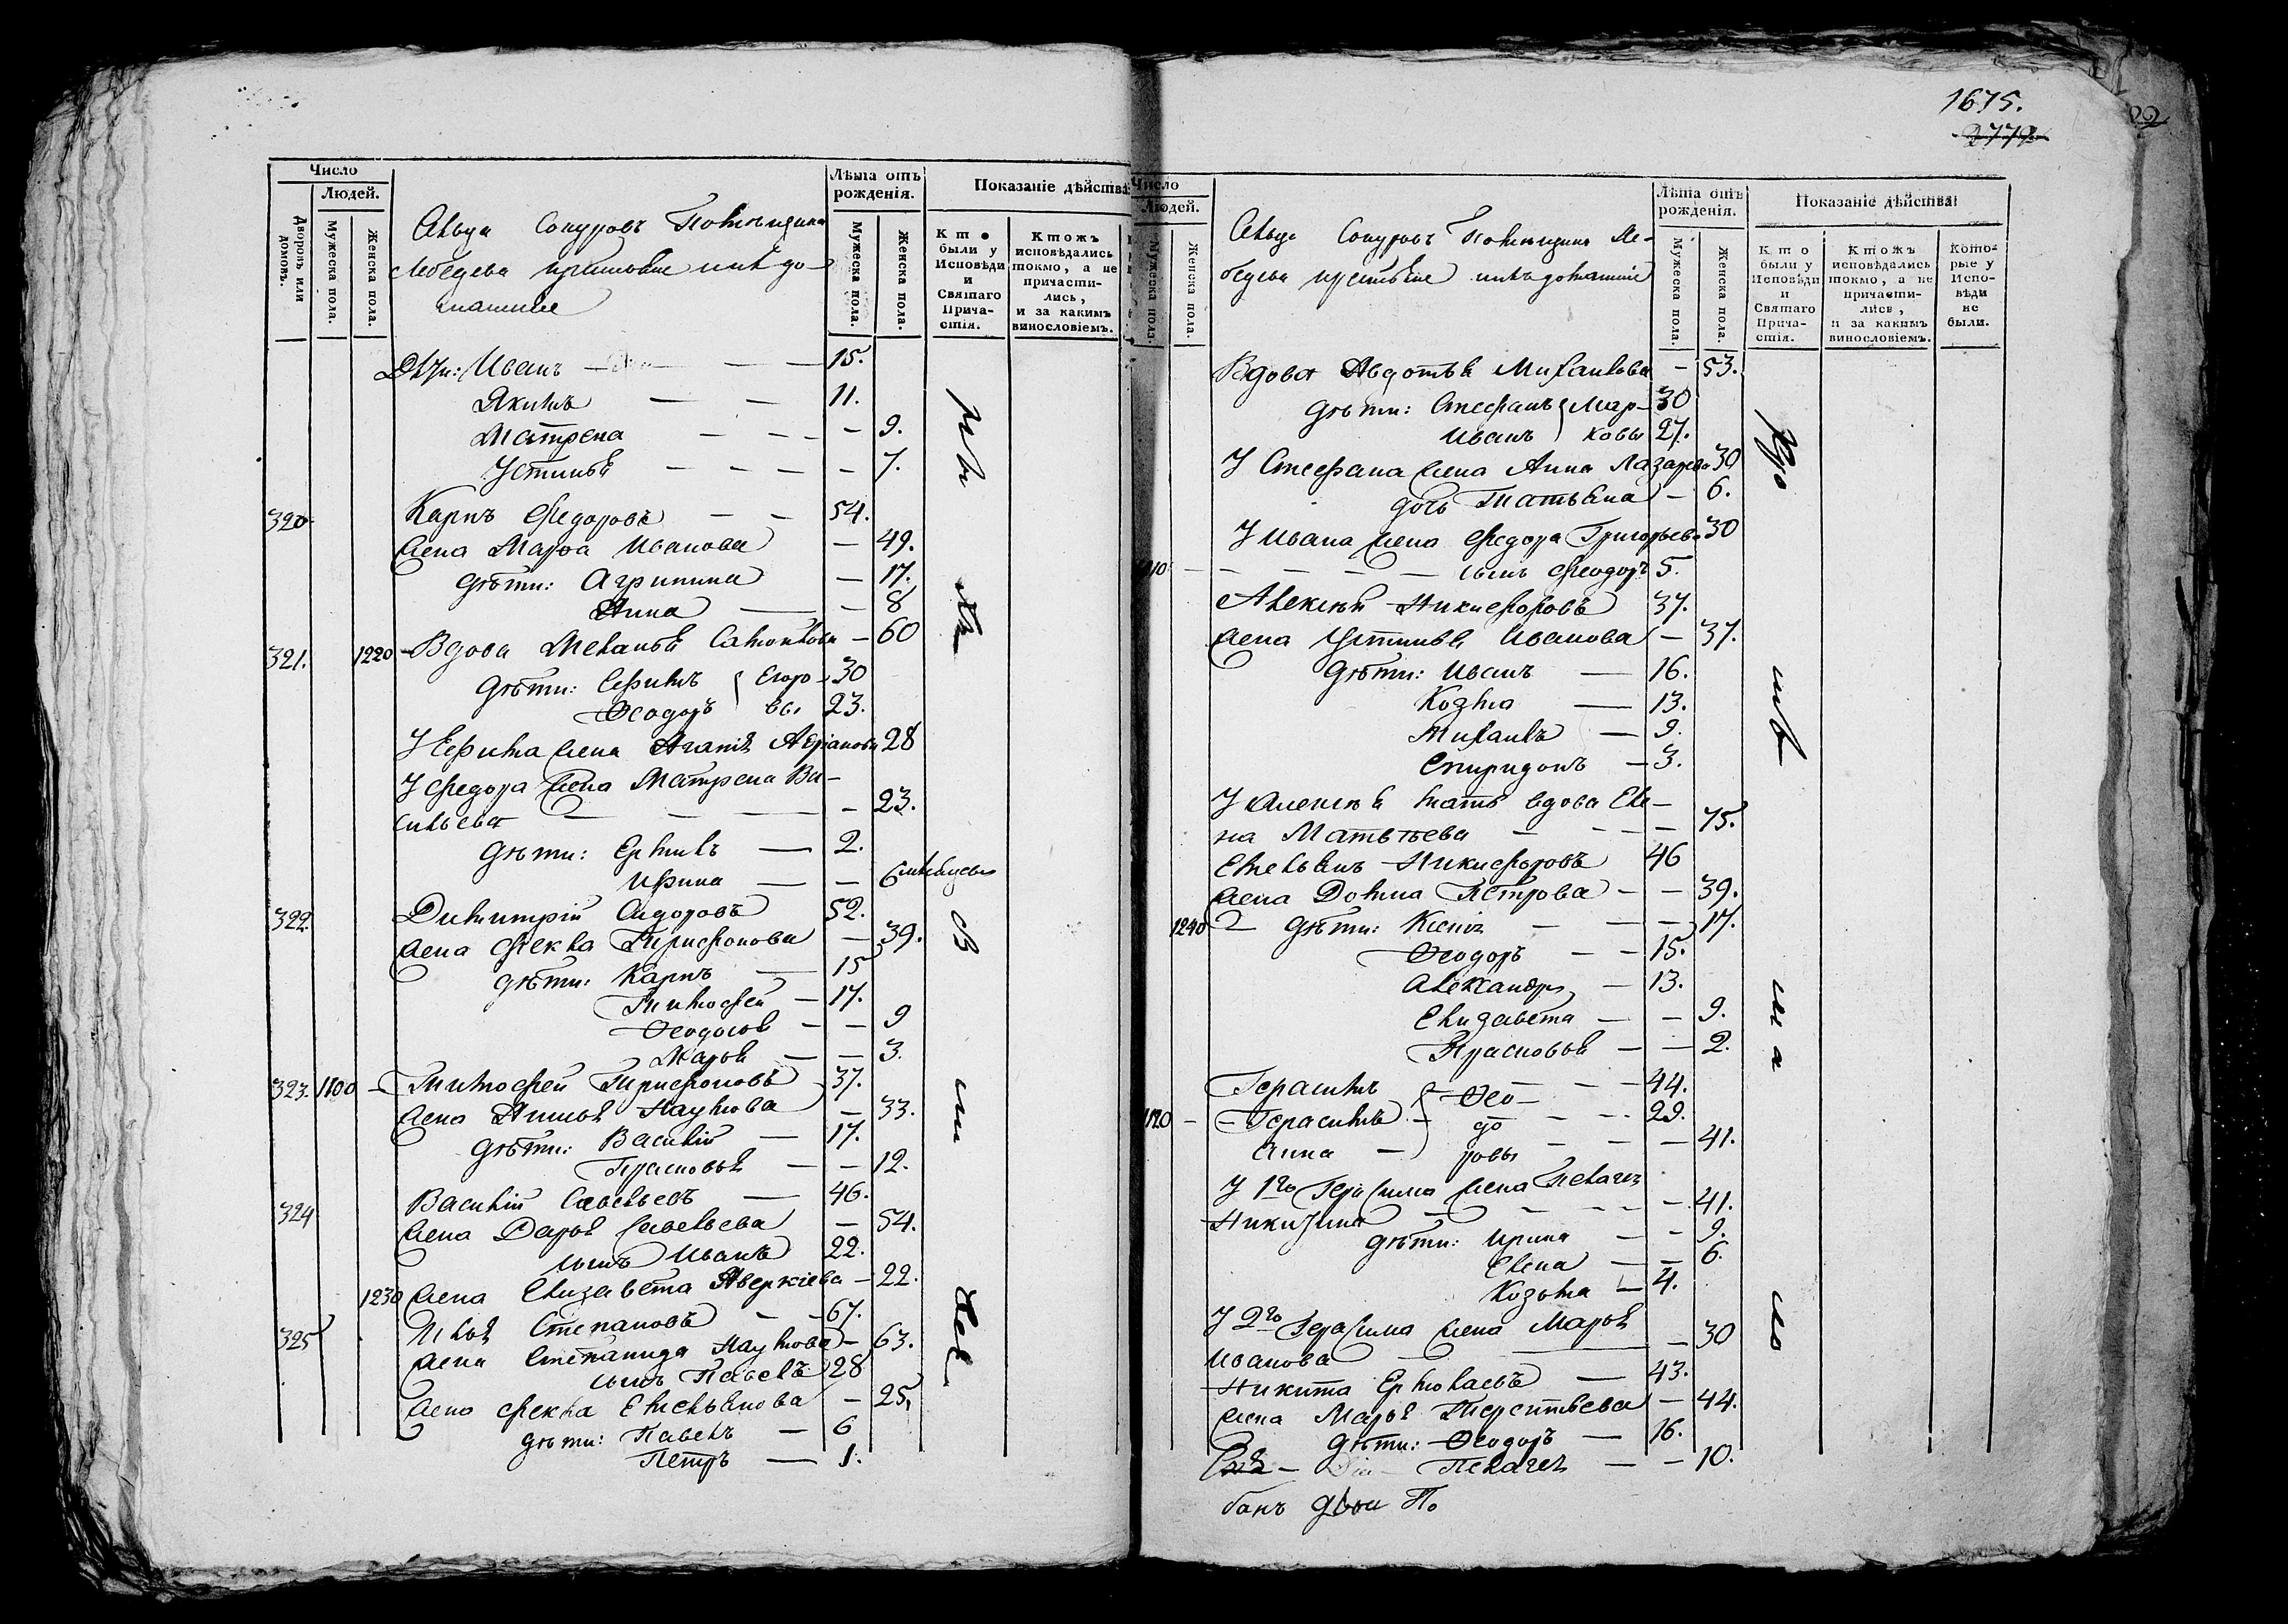 1675.
2772
Число
Людей.
Дворовъ или домовъ.
Мужеска пола.
Женска пола.
Лѣта отъ рожденія.
Мужеска пола.
Женска пола.
Показаніе дѣйства:
К т о были у Исповѣди и Святаго Прича-стія.
К т о ж ъ исповѣдались токмо, а не причасти-лись, и за какимъ винословіемъ.
Помѣщика
Лебедева крестьяне и ихъ до-
машніе
Дѣти: Иванъ — 15.
Якимъ — — 11.
Матрена — — — 9.
Устинья — — — 7.
320. Карпъ Федоровъ — — 54.
жена Марѳа Иванова — 49.
дѣти: Агрипина — 17.
Анна — — 8
321. 1220 Вдова Меланья Самойлова — 60
дѣти: Ефимъ } Егоро- 30
Ѳеодоръ } вы 23.
У Ефима жена Агапія 28
У Федора жена Матрена Ва-
сильева — — — 23.
дѣти: Ермилъ — 2.
Ирина — — 6 мѣсяцевъ
322. Димитрій Сидоровъ 52.
жена Фекла Трифонова — 39.
дѣти: Карпъ — 15
Тимофей — 17.
Ѳеодосья — — 9
Марья — — 3.
323. 1100 — Тимофей Трифоновъ 37.
жена Анисья Наумова — 33.
дѣти: Василій — 17.
Прасковья — — 12.
324 Василій Савельевъ — 46.
жена Дарья Савельева — 54.
сынъ Иванъ 22.
1230 жена Елизавета Аверкіева — 22.
325 Илья Степановъ — — 67.
жена Степанида Наумова — 63.
сынъ Павелъ 28
жена Фекла Емельянова — 25,
дѣти: Павелъ — 6
Петръ — 1.
Число
Людей.
Мужеска пола.
Женска пола.
Лѣта отъ рожденія.
Мужеска пола.
Женска пола.
Показаніе дѣйства:
К т о были у Исповѣди и Святаго Прича-стія.
К т о ж ъ исповѣдались токмо, а не причасти-лись, и за какимъ винословіемъ.
Кото-рые у Испо-вѣди не были.
Помѣщика Ле-
бедева крестьяне и ихъ домашніе
Вдова Авдотья Михайлова — 53.
дѣти: Стефанъ } Мар- 30
Иванъ } ковы 27.
У Стефана жена Анна Лазарева 30
дочь Татьяна — 6.
У Ивана жена Федора Григорьева 30
1110 — — — — сынъ Феодоръ 5.
Алексѣй Никифоровъ 37.
жена Устинья Иванова — 37.
дѣти: Иванъ — 16.
Козма — 13.
Михаилъ — 9.
Спиридонъ — 3.
У Алексѣя мать вдова Еле-
на Матвѣева — — — — 75.
Емельянъ Никифоровъ 46
жена Домна Петрова — — 39.
1240 дѣти: Ксенія — — — 17.
Ѳеодоръ — — 15.
Александръ — 13.
Елизавета — — 9.
Прасковья — — 2.
Герасимъ } Ѳео- — — 44.
1120 — Герасимъ } до — — 29.
Анна — } ровы — — — 41.
У 1го Герасима жена Пелагея
Никитина — — — — 41.
дѣти: Ирина — — 9.
Елена — — 6.
Козьма — 4.
У 2го Герасима жена Марья
Иванова — — 30
Никита Ермолаевъ — 43.
жена Марья Терентьева — 44.
дѣти: Ѳеодоръ — 16.
Пелагея — — 10.